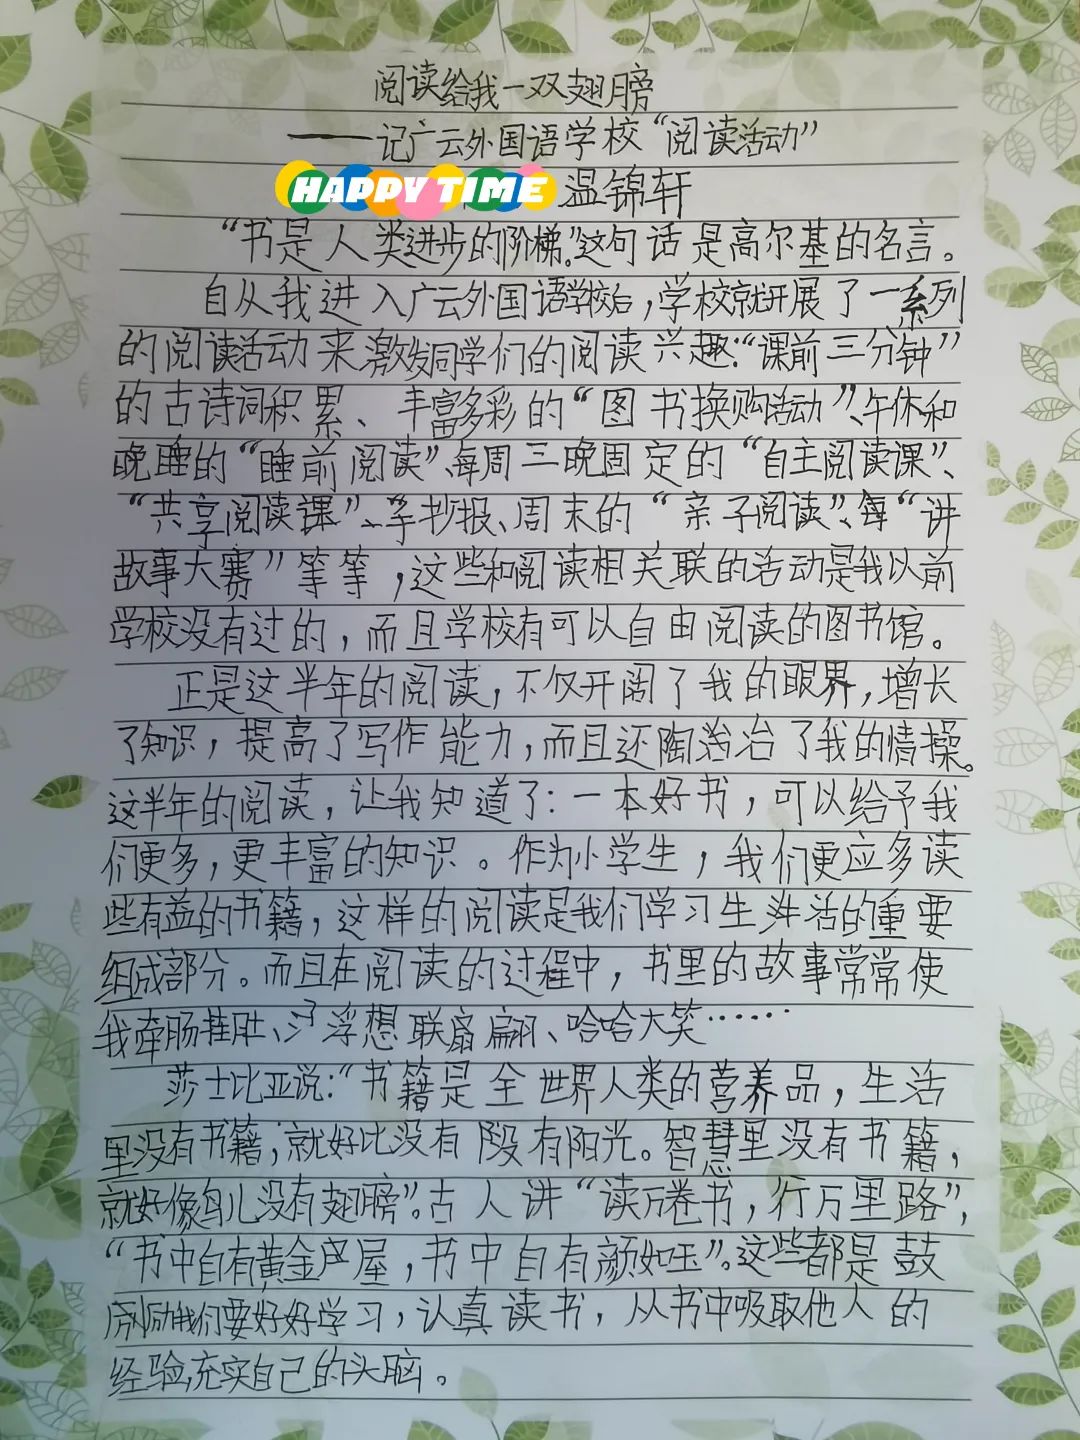 阅读给我一双翅膀
——记广云外国语学校“阅读活动”
HAPPY TIME 温锦轩
“书是人类进步的阶梯。”这句话是高尔基的名言。
自从我进入广云外国语学校后，学校就开展了一系列
的阅读活动来激发同学们的阅读兴趣：“课前三分钟”
的古诗词积累、丰富多彩的“图书换购活动”、午休和
晚睡的“睡前阅读”、每周三晚固定的“自主阅读课”、
“共享阅读课”、手抄报、周末的“亲子阅读”、每“讲
故事大赛”等等，这些和阅读相关联的活动是我以前
学校没有过的，而且学校有可以自由阅读的图书馆。
正是这半年的阅读，不仅开阔了我的眼界，增长
了知识，提高了写作能力，而且还陶冶冶了我的情操。
这半年的阅读，让我知道了：一本好书，可以给予我
们更多，更丰富的知识。作为小学生，我们更应多读
些有益的书籍，这样的阅读是我们学习生活的重要
组成部分。而且在阅读的过程中，书里的故事常常使
我牵肠挂肚、浮想联翩、哈哈大笑……
莎士比亚说：“书籍是全世界人类的营养品，生活
里没有书籍，就好比没有没有阳光。智慧里没有书籍，
就好像鸟儿没有翅膀”。古人讲“读万卷书，行万里路”，
“书中自有黄金屋，书中自有颜如玉”。这些都是鼓
励我们要好好学习，认真读书，从书中吸取他人的
经验，充实自己的头脑。